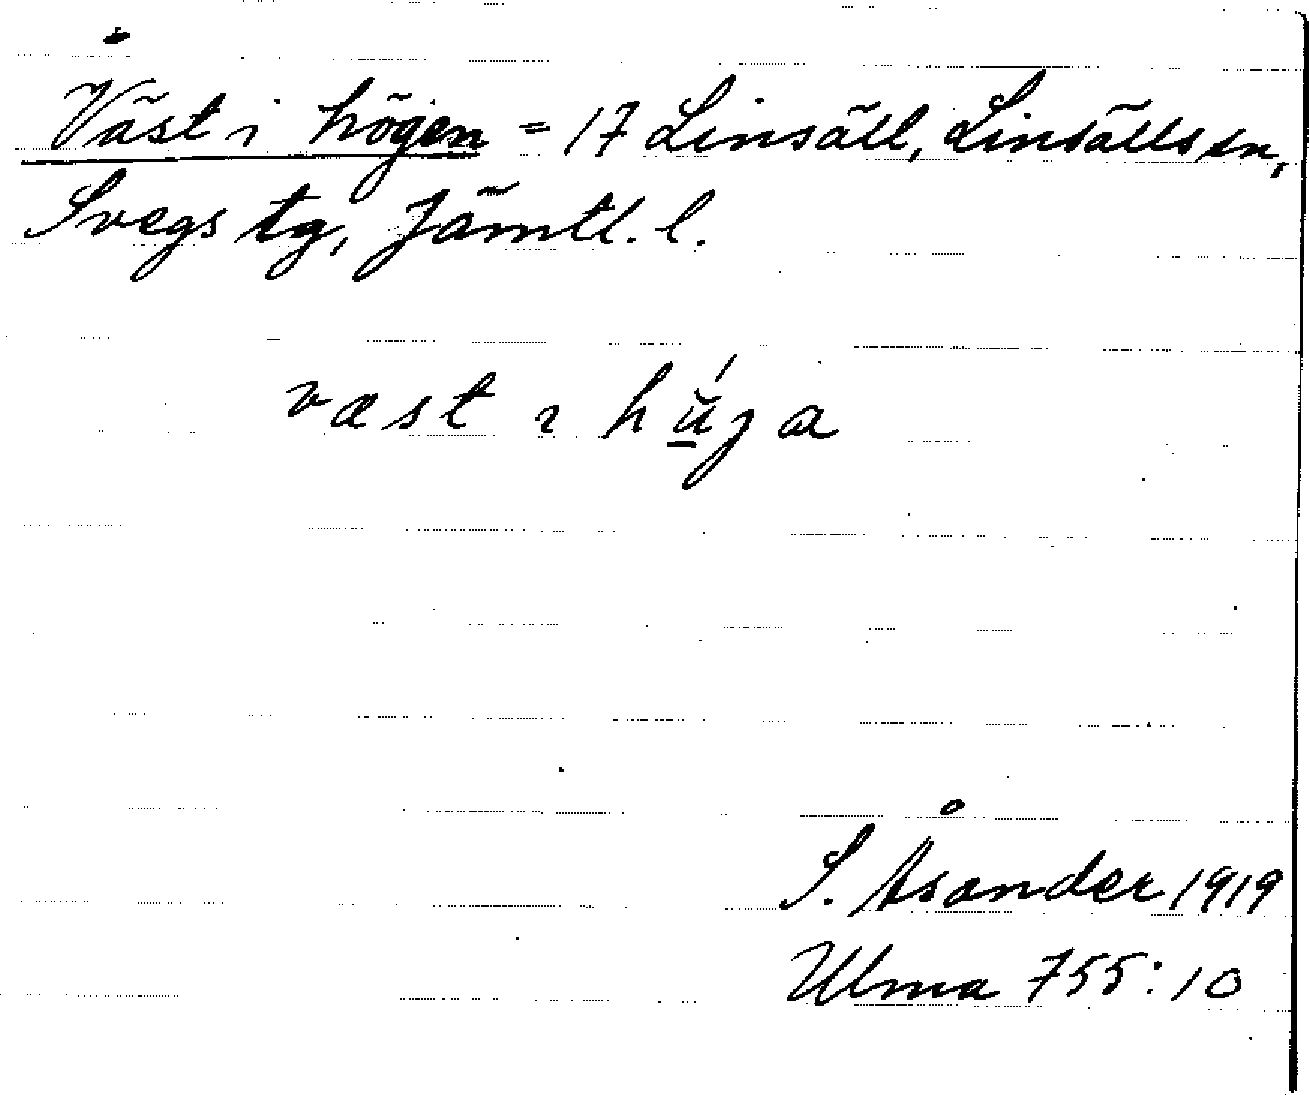 Väst i högen = 17 Linsäll, Linsälls sn,
Svegs tg, Jämtl. l.
væst ı hú̲ja
S. Åsander 1919
Ulma 755:10